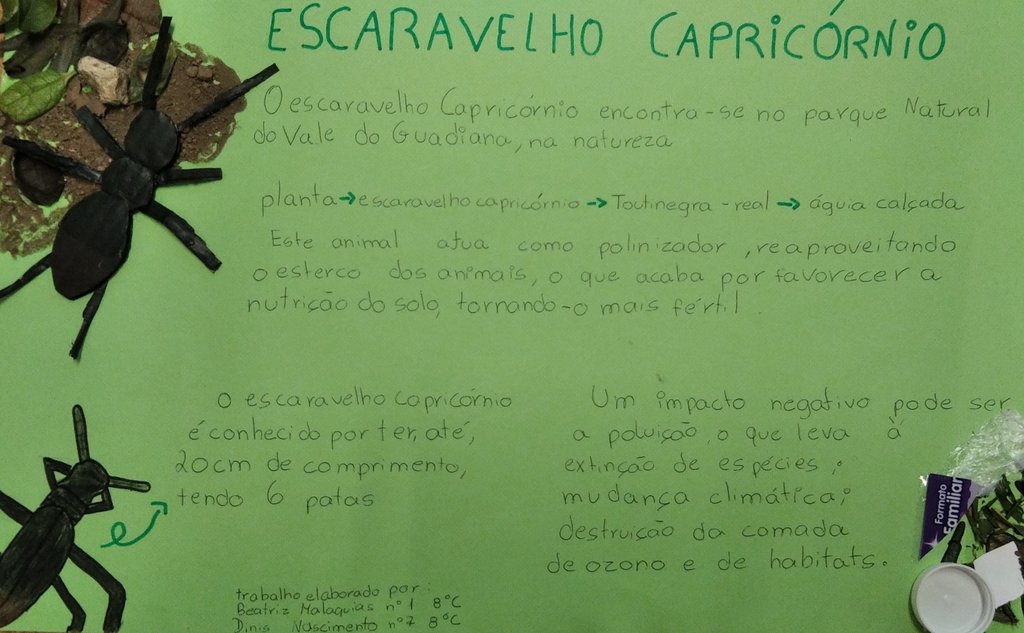 ESCARAVELHO CAPRICÓRNIO
O escaravelho Capricórnio encontra-se no parque Natural
do Vale do Guadiana, na natureza
planta → escaravelho capricórnio → Toutinegra - real → águia calçada
Este animal atua como polinizador, reaproveitando
o esterco dos animais, o que acaba por favorecer a
nutrição do solo, tornando-o mais fértil
O escaravelho capricórnio
é conhecido por ter, até,
20cm de comprimento,
tendo 6 patas
Um impacto negativo pode ser
a poluição, o que leva à
extinção de espécies;
mudança climática;
destruição da comada
de ozono e de habitats.
Formato
Familiar
trabalho elaborado por:
Beatriz Malaquias nº1 8ºC
Dinis Nascimento nº7 8ºC